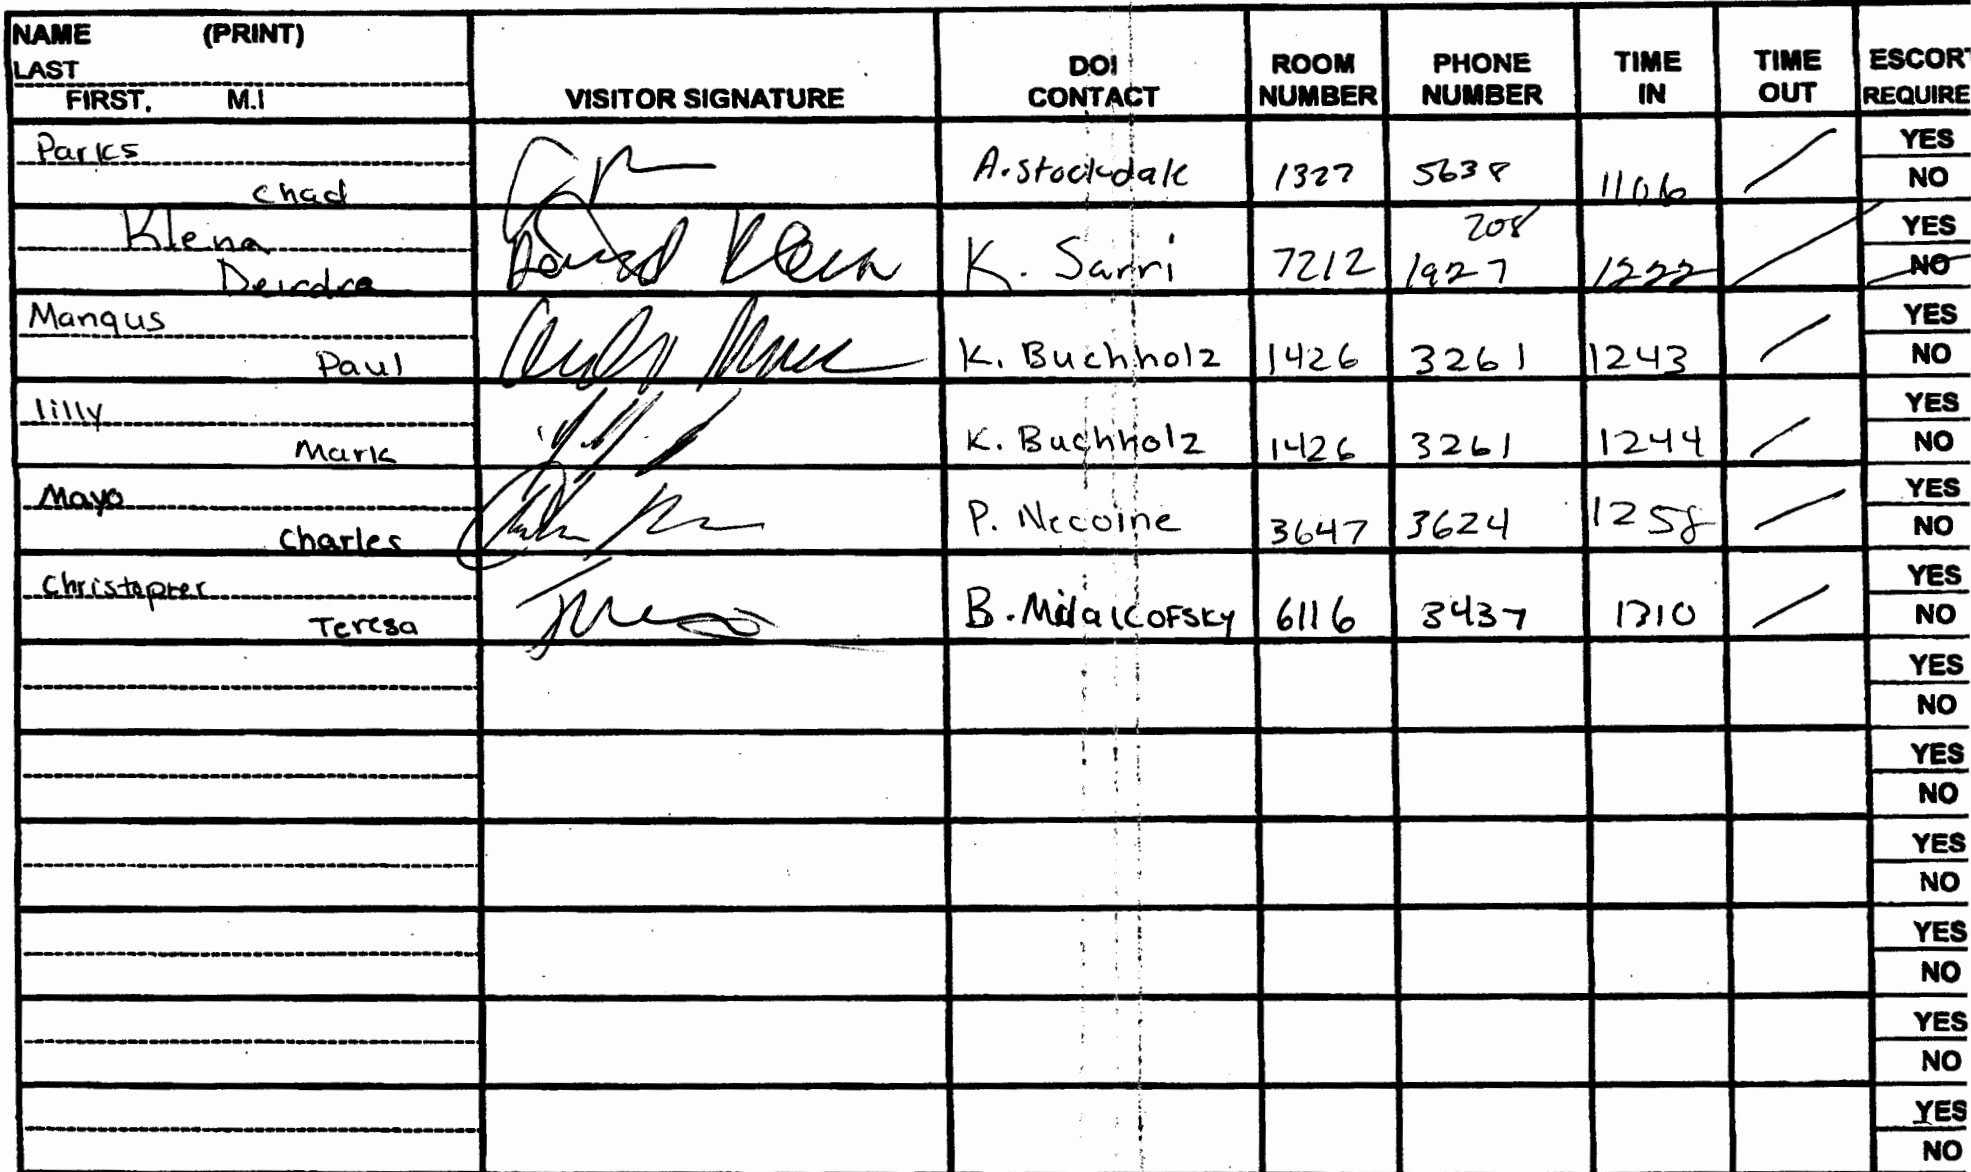 NAME (PRINT)
LAST
FIRST, M.I
VISITOR SIGNATURE
DOI CONTACT
ROOM NUMBER
PHONE NUMBER
TIME IN
TIME OUT
ESCORT REQUIRE
Parks
Chad
A. Stockdale 1327 5638 1106 YES
NO
Klena
Deirdre
K. Sarri 7212 208 1927 1222 YES
NO
Mangus
Paul
K. Buchholz 1426 3261 1243 YES
NO
lilly
Mark
K. Buchholz 1426 3261 1244 YES
NO
Mayo
Charles
P. Necoine 3647 3624 1258 YES
NO
Christopher
Teresa
6116 3437 1310 YES
NO
YES
NO
YES
NO
YES
NO
YES
NO
YES
NO
YES
NO